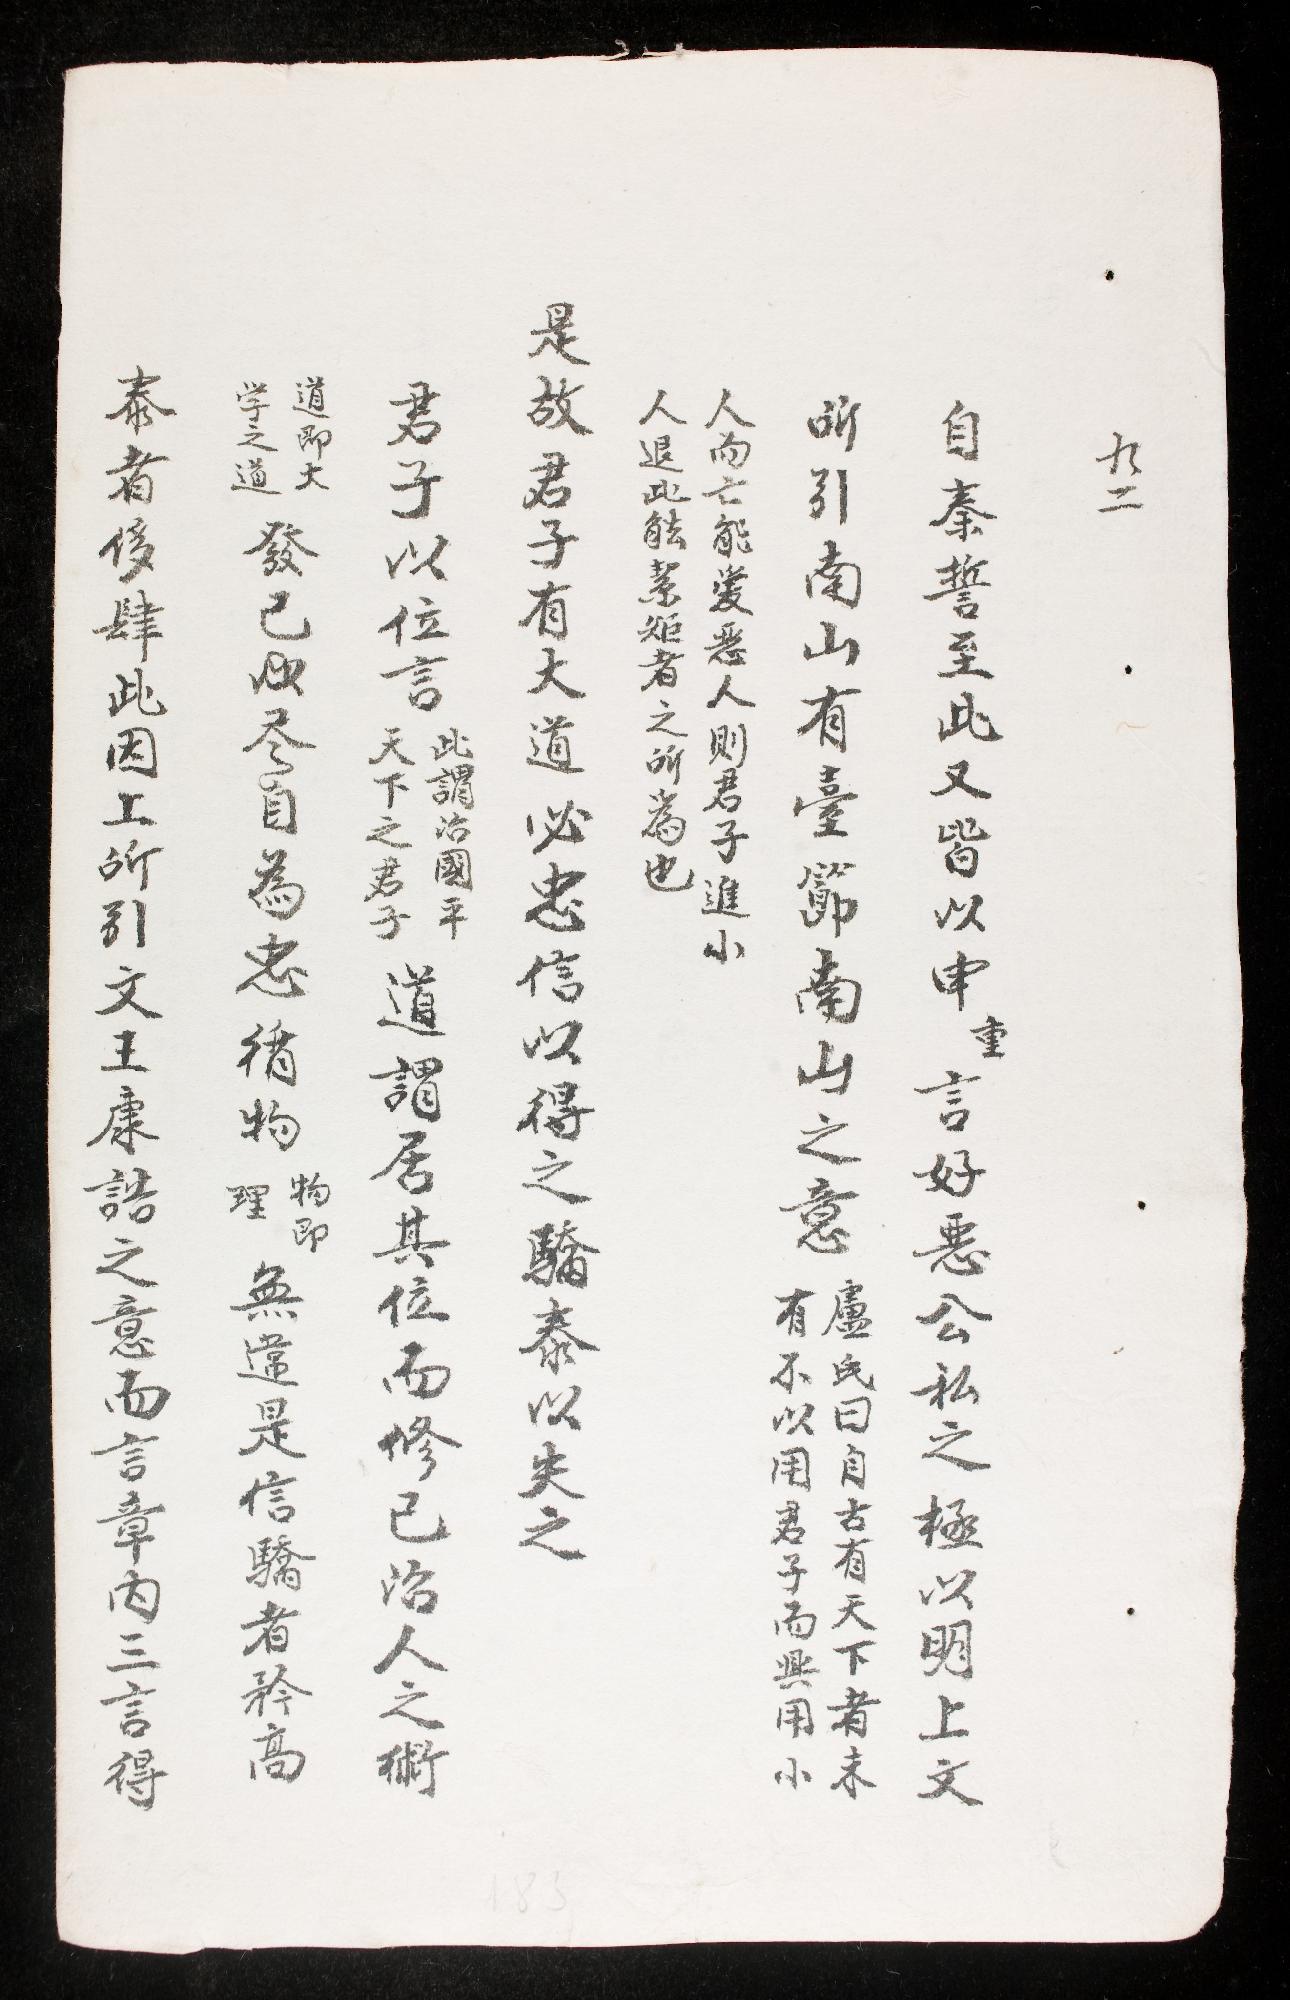 九二
自秦誓至此又皆以申重言好惡公私之極以明上文
所引南山有臺節南山之意盧氏曰自古有天下者未
有不以用君子而興用小
人而亡能愛惡人則君子進小
人退此能絜矩者之所為也
是故君子有大道必忠信以得之驕泰以失之
君子以位言此謂治國平
天下之君子道謂居其位而修己治人之術
道即大
学之道發己自尽自為忠循物物即
理無違是信驕者矜高
泰者侈肆此因上所引文王康誥之意而言章内三言得
183